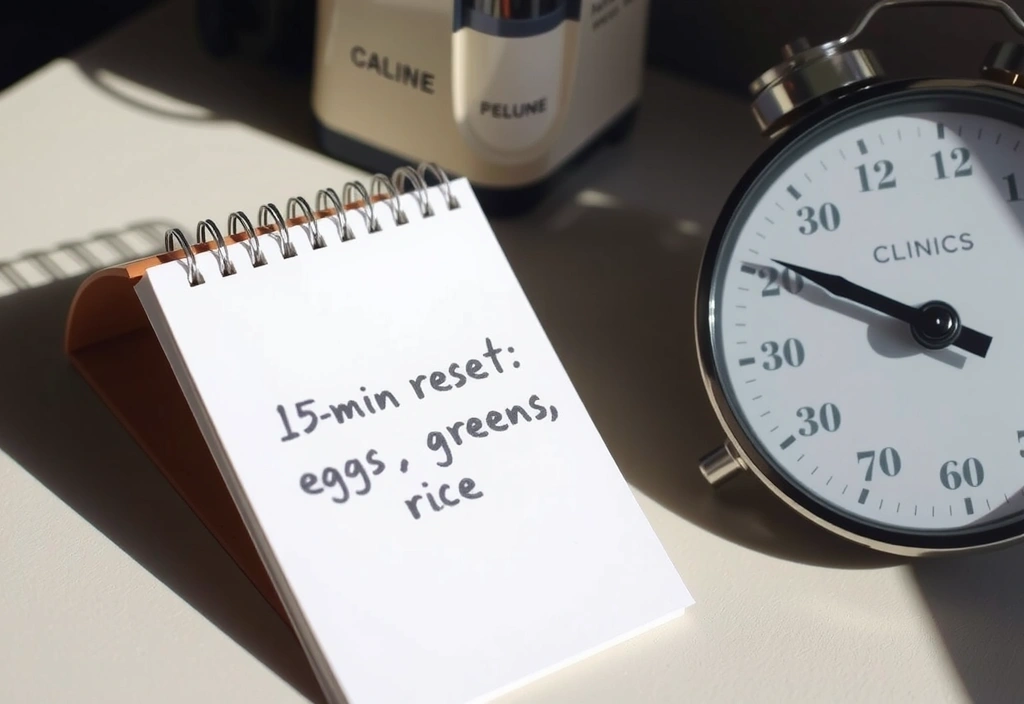 CALINE
PELUNE
15-min reset:
eggs, greens,
rice
12
12
30
CLINICS
20
30
30
70
60